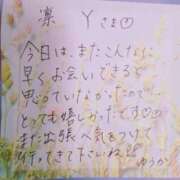 凛 Yさま♡
今日は、またこんなに
早くお会いできると
思っていなかったので
とっても嬉しかったです♡♡
また出張へ気をつけて
行ってきて下さいね
ゆうか